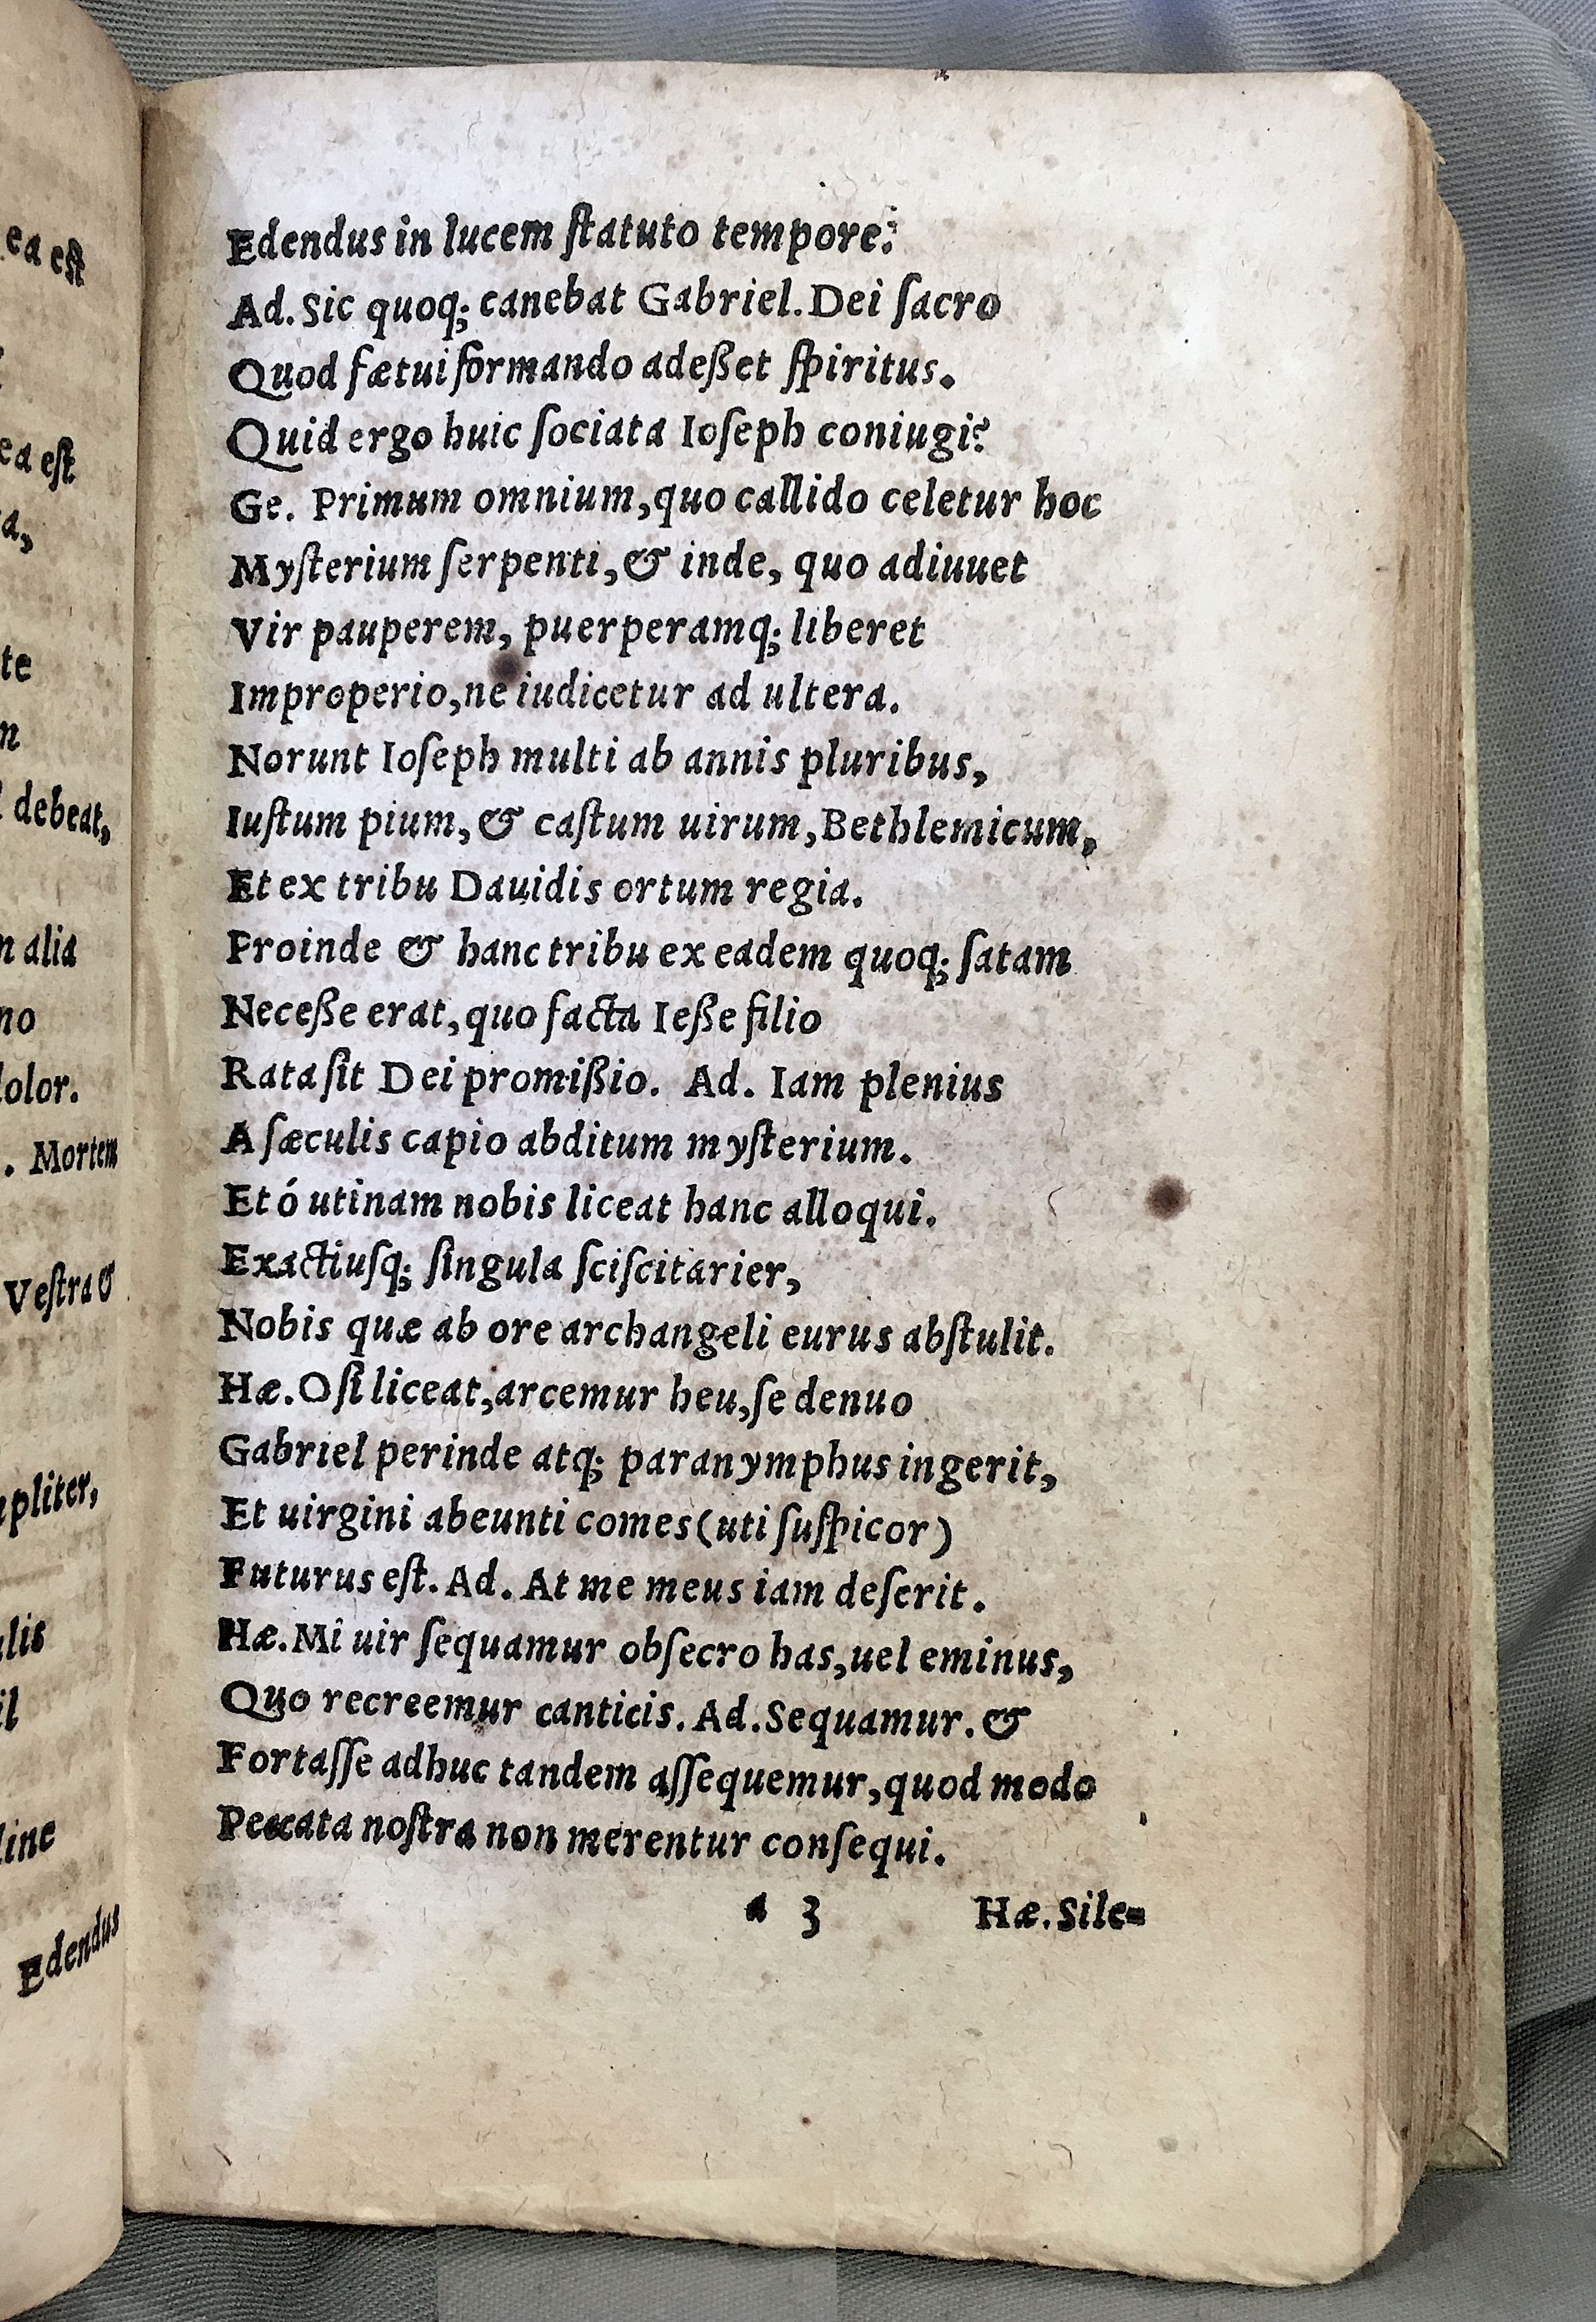 ea est
ea est
a,
te
n
debeat,
n alia
no
dolor.
. Mortem
Vestra &
pliter,
lis
il
line
Edendus
Edendus in lucem ſtatuto tempore?
Ad. Sic quoq; canebat Gabriel. Dei ſacro
Quod fætui formando adeßet ſpiritus.
Quid ergo huic ſociata Ioſeph coniugi?
Ge. Primum omnium, quo callido celetur hoc
Myſterium ſerpenti, & inde, quo adiuuet
Vir pauperem, puerperamq; liberet
Improperio, ne iudicetur ad ultera.
Norunt Ioſeph multi ab annis pluribus,
Iuſtum pium, & caſtum uirum, Bethlemicum,
Et ex tribu Dauidis ortum regia.
Proinde & hanc tribu ex eadem quoq; ſatam
Neceße erat, quo facta Ieße filio
Rata ſit Dei promißio. Ad. Iam plenius
A ſæculis capio abditum myſterium.
Et ó utinam nobis liceat hanc alloqui.
Exactiuſq; ſingula ſciſcitarier,
Nobis quæ ab ore archangeli eurus abſtulit.
Hæ. O ſi liceat, arcemur heu, ſe denuo
Gabriel perinde atq; paranymphus ingerit,
Et uirgini abeunti comes (uti ſuſpicor)
Futurus eſt. Ad. At me meus iam deſerit.
Hæ. Mi uir ſequamur obſecro has, uel eminus,
Quo recreemur canticis. Ad. Sequamur. &
Fortaſſe adhuc tandem aſſequemur, quod modo
Peccata noſtra non merentur conſequi.
a 3 Hæ. Sile=